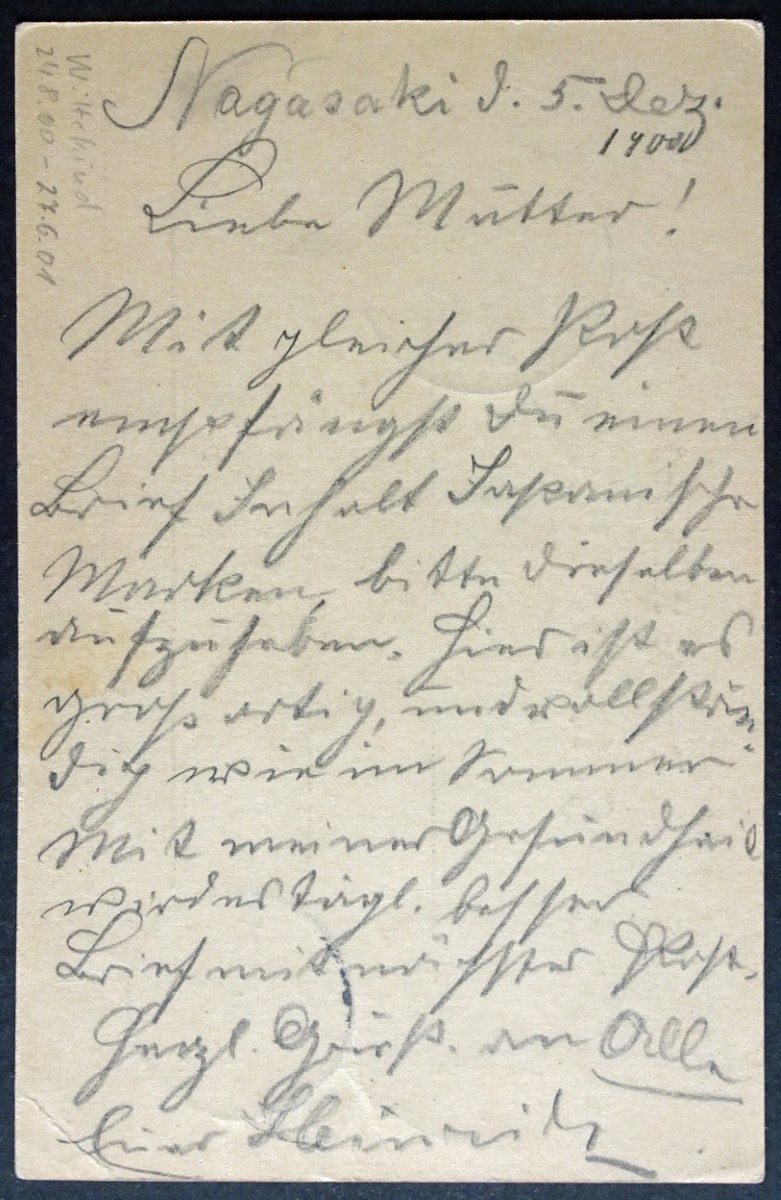 Nagasaki d. 5. Dez.
1900
Liebe Mutter!
Mit gleicher Post
empfängst Du einen
Brief Inhalt Japanische
Marken, bitte dieselben
aufzuheben. Hier ist es
großartig, und vollstän-
dig wie im Sommer
Mit meiner Gesundheit
wird es tägl. besser
Brief mit nächster Post.
Herzl. Grüß. an Alle
Euer Heinrich
Wittekind
24.8.00 - 27.6.01